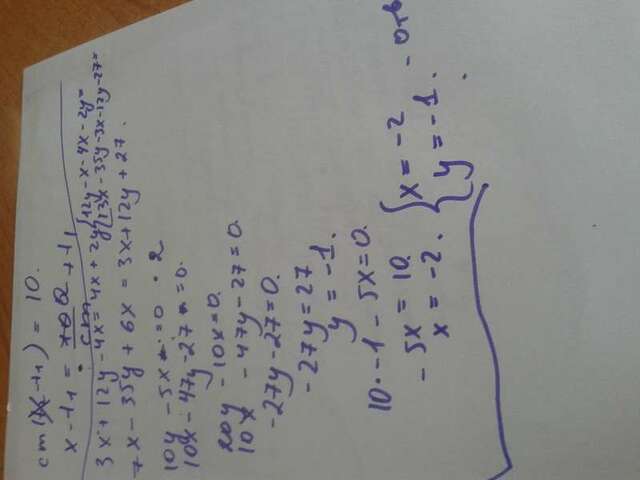 3x + 12y - 4x = 4x + 2y { 12y - x - 4x - 2y =
7x - 35y + 6x = 3x + 12y + 27. 13x - 35y - 3x - 12y - 27 =
10y - 5x = 0 · 2
10x - 47y - 27 = 0.
20y - 10x = 0.
10x - 47y - 27 = 0.
-27y - 27 = 0.
-27y = 27
y = -1.
10 · -1 - 5x = 0.
-5x = 10. { x = -2 - отв
x = -2. y = -1.